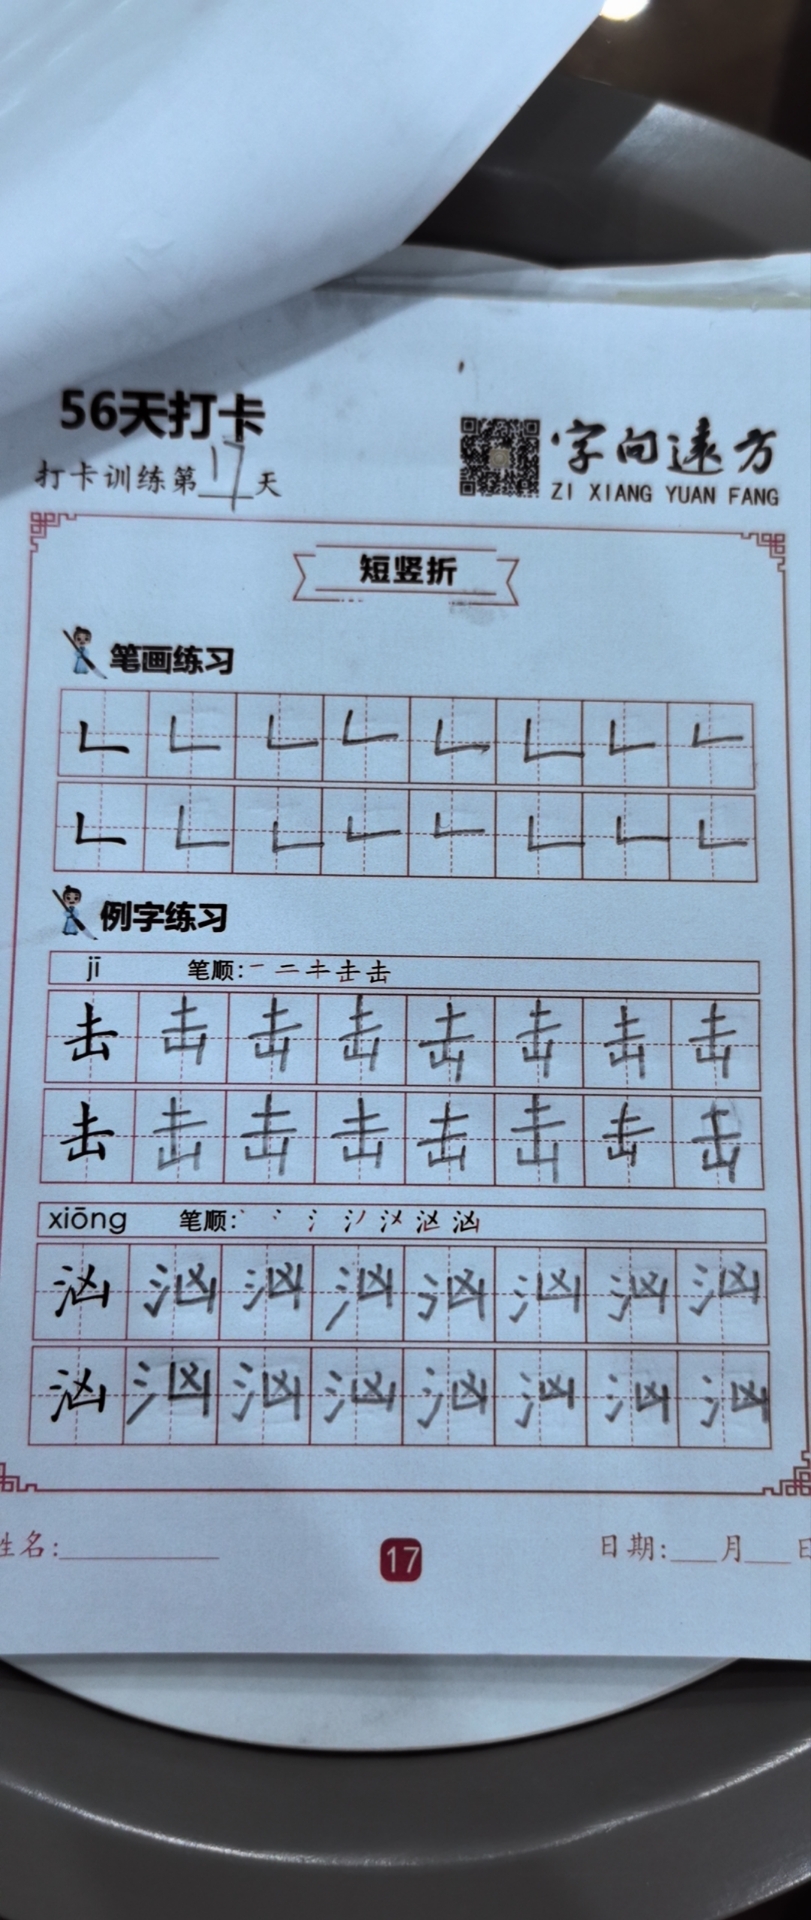 56天打卡
打卡训练第17天
字向远方
ZI XIANG YUAN FANG
短竖折
笔画练习
例字练习
jī 笔顺:
击 击 击 击 击 击 击 击
击 击 击 击 击 击 击 击
xiōng 笔顺:
汹 汹 汹 汹 汹 汹 汹 汹
汹 汹 汹 汹 汹 汹 汹 汹
姓名: 17 日期: 月 日